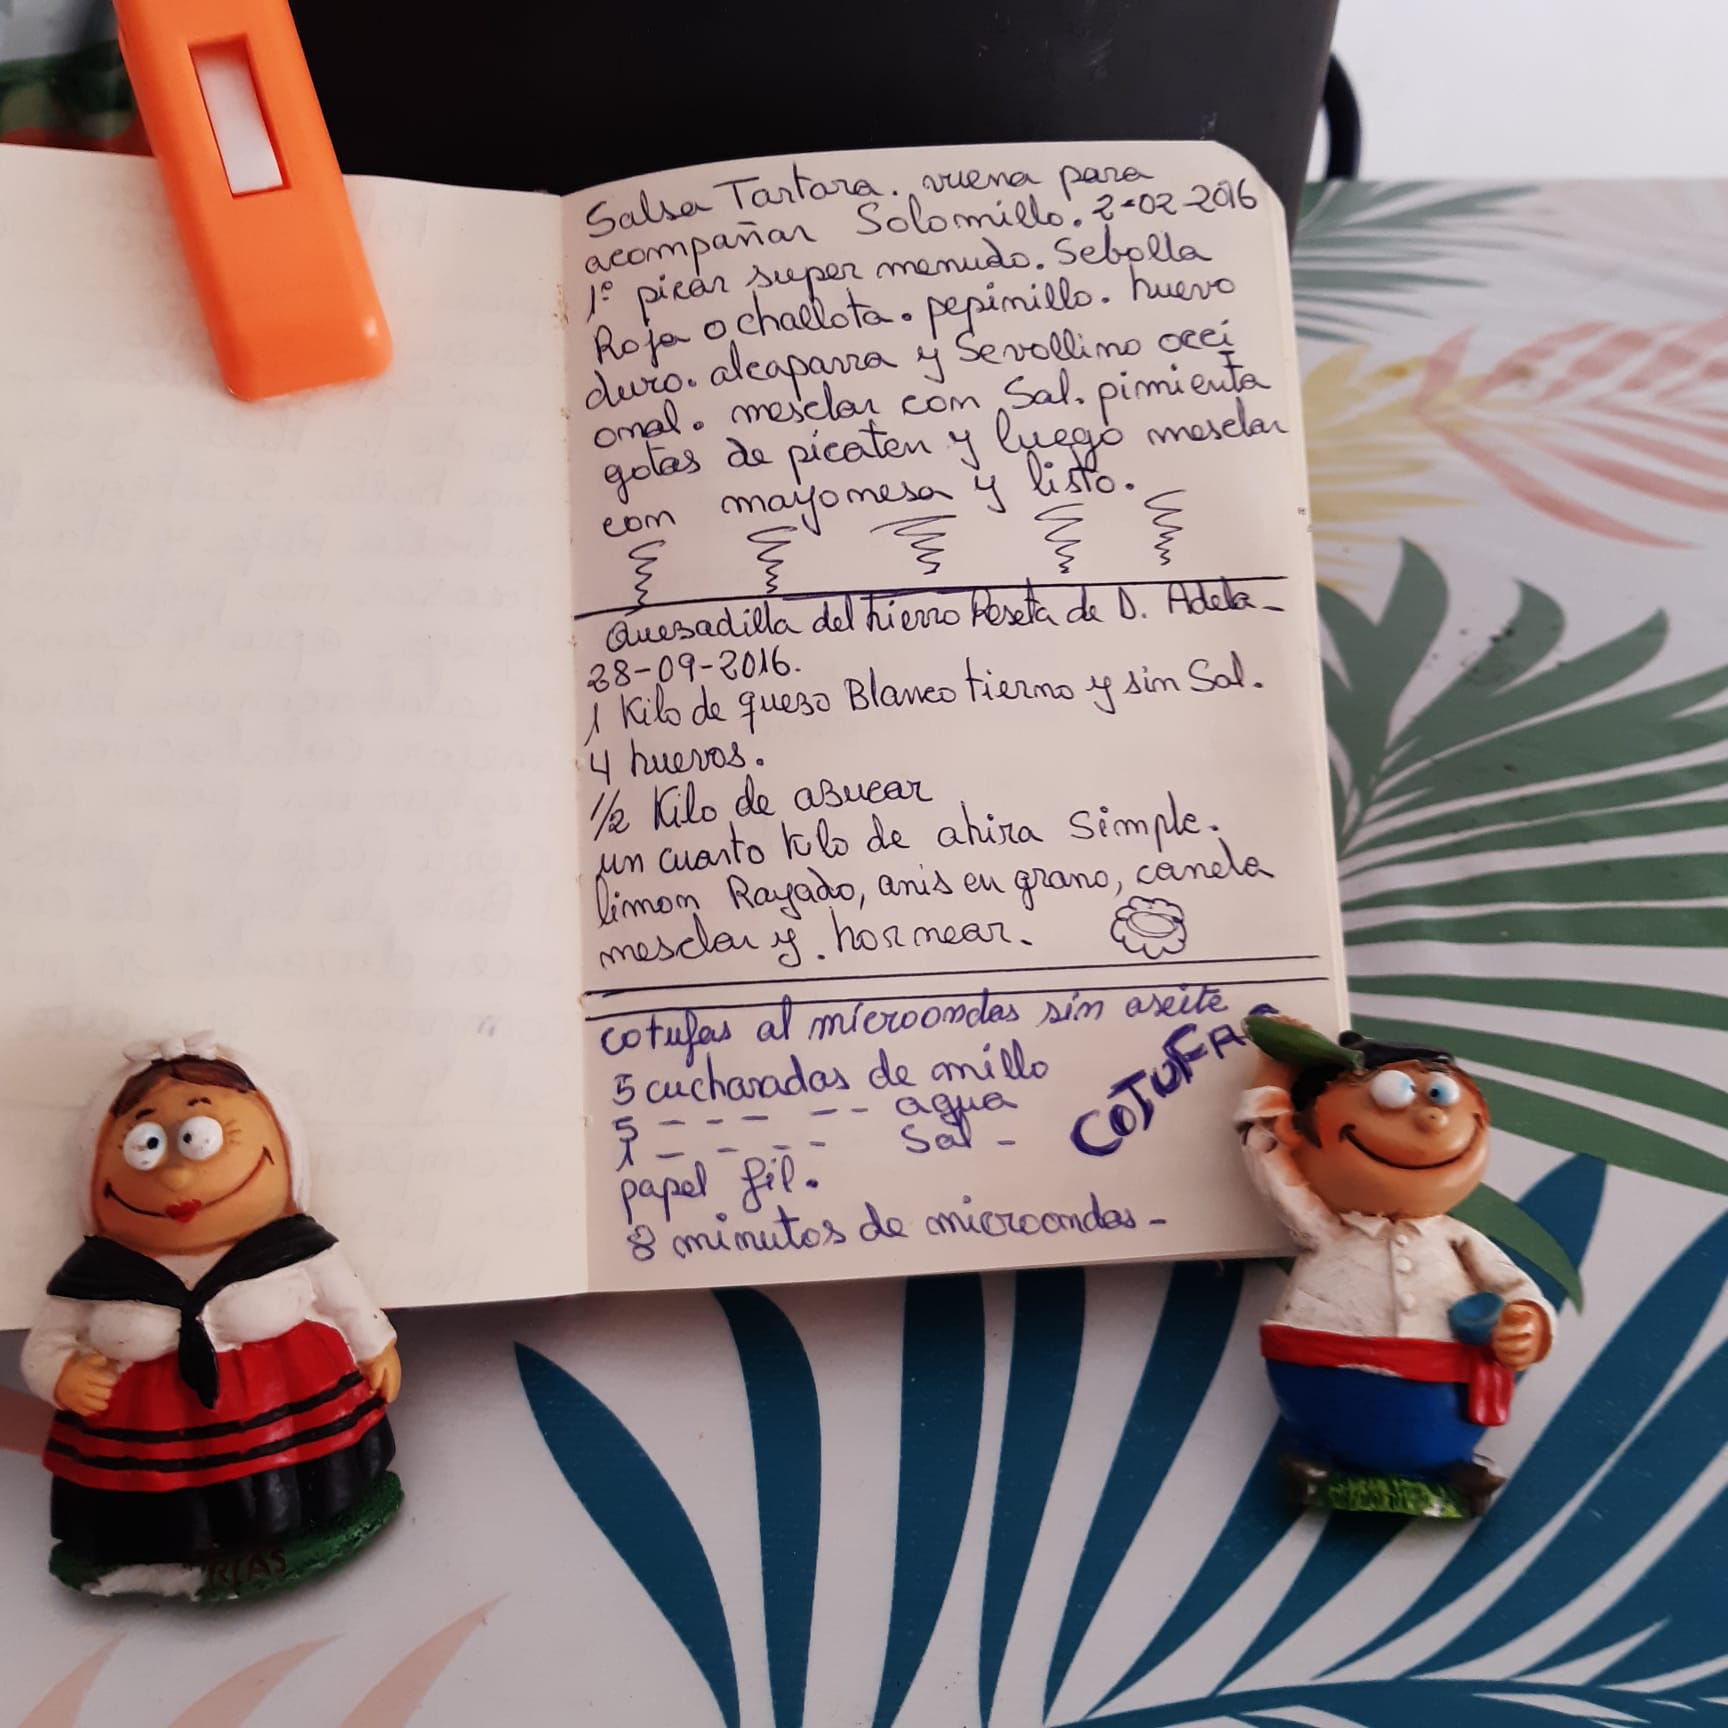 Salsa Tartara. vuena para
acompañar Solomillo. 2-02-2016
1º picar super menudo. Sebolla
Roja o challota. pepinillo. huevo
duro. alcaparra y Sevollino occi
onal. mesclar con Sal. pimienta
gotas de picaten y luego mesclar
con mayonesa y listo.
Quesadilla del hierro Reseta de D. Adela-
28-09-2016.
1 Kilo de queso Blanco tierno y sin Sal.
4 huevos.
1/2 Kilo de asucar
un cuarto kilo de ahira Simple.
limon Rayado, anis en grano, canela
mesclar y. hornear.
cotufas al microondas sin aseite
5 cucharadas de millo
5 - - - - - agua
1 - - - - - Sal -
papel fil.
8 minutos de microondas-
COTUFA
RIAS